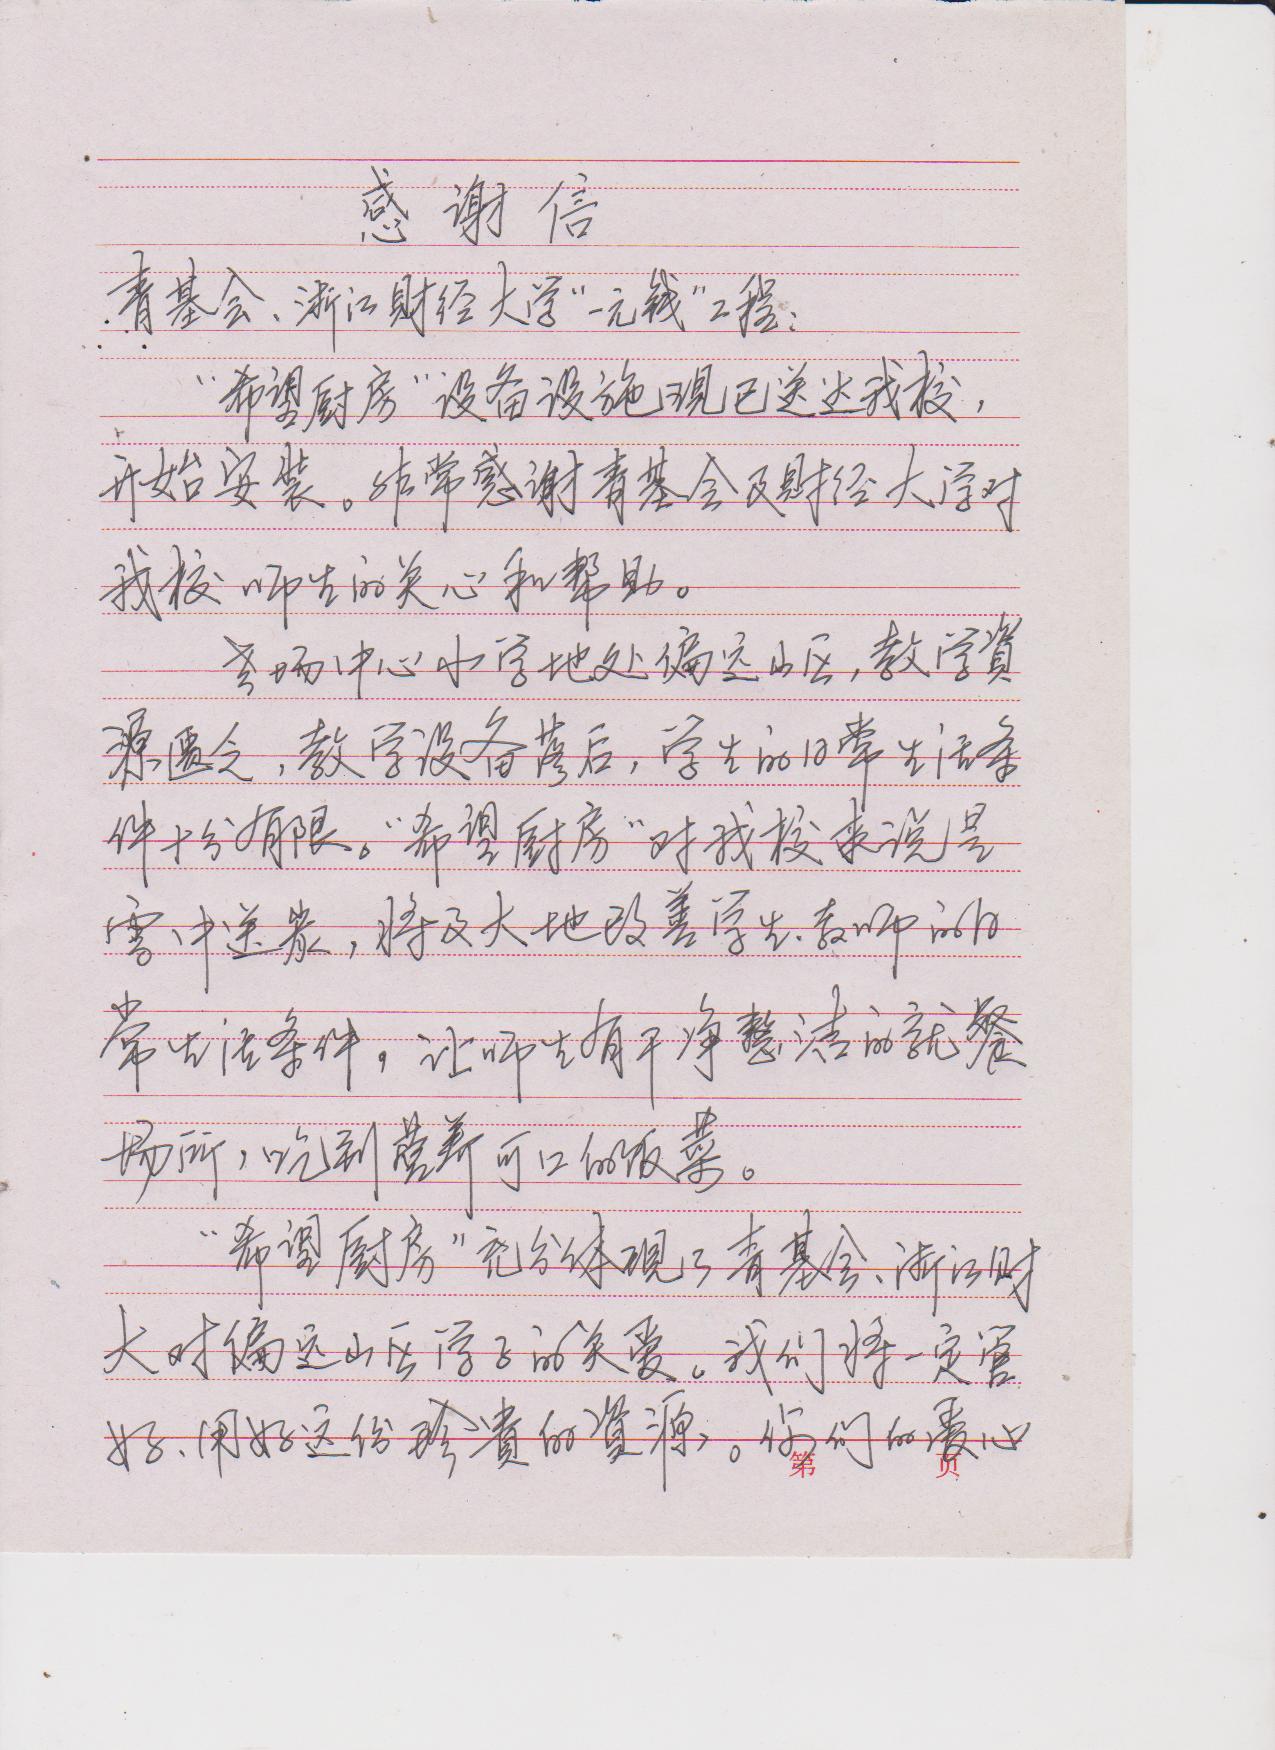 感谢信
青基会、浙江财经大学“一元钱”工程：
“希望厨房”设备设施现已送达我校，
开始安装。非常感谢青基会及财经大学对
我校师生的关心和帮助。
场中心小学地处偏远山区，教学资
源匮乏，教学设备落后，学生的日常生活条
件十分有限。“希望厨房”对我校来说是
雪中送炭，将及大地改善学生、教师的日
常生活条件，让师生有干净整洁的就餐
场所，吃到营养可口的饭菜。
“希望厨房”充分体现了青基会、浙江财
大对偏远山区学子的关爱。我们将一定管
好、用好这份珍贵的资源。你们的爱心
第 页